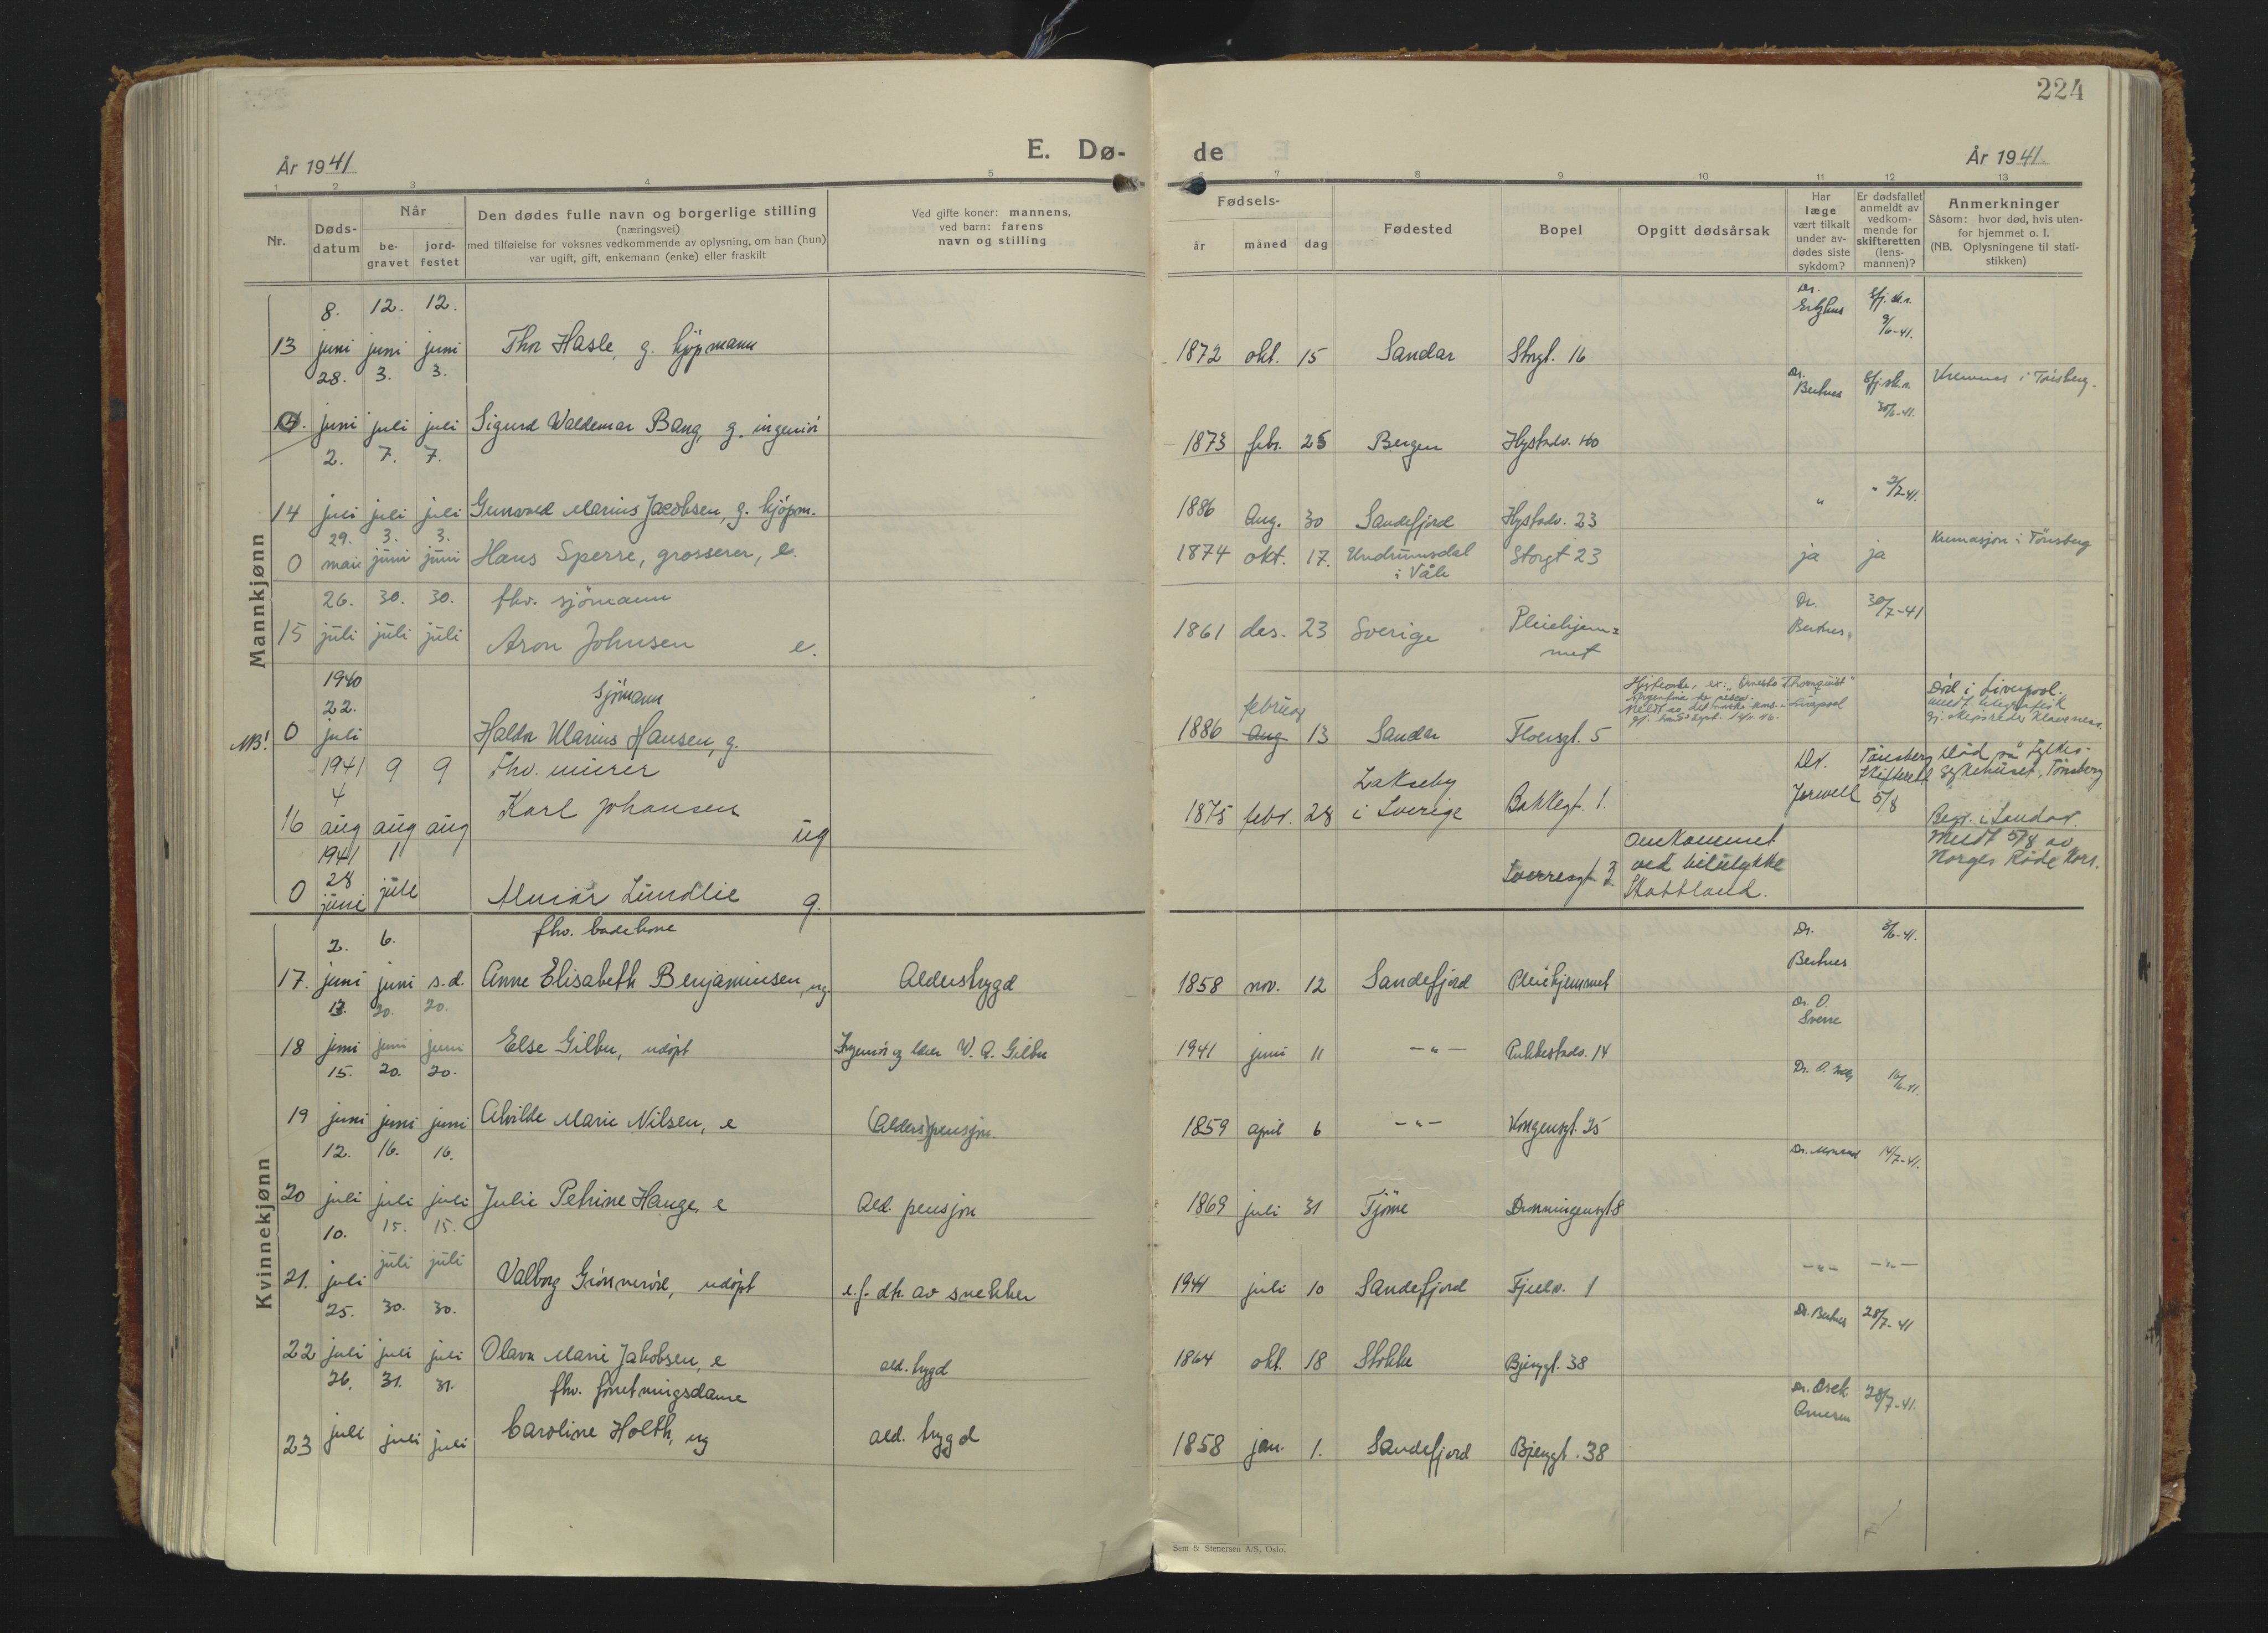 224
E. Dø- de
År 1941
År 1941.
1 2 3 4 5
6 7 8 9 10 11 12 13
Nr.
Døds-datum
Når
be-gravet
jord-festet
Den dødes fulle navn og borgerlige stilling
(næringsvei)
med tilføielse for voksnes vedkommende av oplysning, om han (hun)
var ugift, gift, enkemann (enke) eller fraskilt
Ved gifte koner: mannens,
ved barn: farens
navn og stilling
Fødsels-
år måned dag
Fødested
Bopel
Opgitt dødsårsak
Har
læge
vært tilkalt
under av-
dødes siste
sykdom?
Er dødsfallet
anmeldt av
vedkom-
mende for
skifteretten
(lens-
mannen)?
Anmerkninger
Såsom: hvor død, hvis uten-
for hjemmet o. l.
(NB. Oplysningene til stati-
stikken)
Mannkjønn
8. 12. 12.
13 juni juni juni Thor Hasle, g. kjøpmann 1872 okt. 15 Sandar Storgt. 16 Dr. 9/6-41.
28. 3. 3.
juni juli juli Sigurd Waldemar Bang, g. ingeniør 1873 febr. 25 Bergen Hystadv. Dr. Bertnes 30/6-41. i Tønsberg.
2. 7. 7.
14 juli juli juli Gunvald Marius Jacobsen, g. kjøpm. 1886 Aug. 30 Sandefjord Hystadv. 23 " "
29. 3. 3.
0 mai juni juni Hans Sperre, grosserer, e. 1874 okt. 17. Undrumsdal i Våle Storgt 23 ja ja Kremasjon i Tønsberg
26. 30. 30. fhv. sjømann
15 juli juli juli Aron Johnsen e. 1861 des. 23 Sverige Pleiehjem=met Dr. Bertnes 30/7-41
1940
22. sjømann
NB! 0 juli Haldor Marius Hansen, g. 1886 februar Aug 13 Sandar Floersgt. 5
Død i Liverpool.
meldt telegrafisk
1941 9 9 Fhv. murer
4
16 aug aug aug Karl Johansen ug 1875 febr. 28 i Sverige Bakkegt. 1. Dr. Tønsberg Skifterett 5/8
Død på Fylkes-
sykehuset, Tønsberg
Begr. i Sandar.
1941 1
28
0 juni juli Lundlie g. Sverresgt 3.
Omkommet
ved bilulykke
Skottland.
Meldt 5/8 av
Norges Røde Kors.
Kvinnekjønn
2. 6. fhv. badekone
17. juni juni s.d. Anne Elisabeth Benjaminsen, ug. Alderstrygd 1858 nov. 12 Sandefjord Pleiehjemmet Dr. Bertnes 3/6-41.
13. 20. 20.
18 juni juni juni Else Gilbu, udøpt Gilbu 1941 juni 11 — " — Pukkestadv. 14 Dr. O. Sverre
15. 20. 20.
19 juni juni juni Alvilde Marie Nilsen, e (Alders)pensjon. 1859 april 6 — " — Kongensgt. 25 Dr. O.
12. 16. 16.
20 juli juli juli Julie Petrine Hauge, e Ald. pensjon 1869 juli 31 Tjøme Dronningensgt 8 14/7-41.
10. 15. 15.
21. juli juli juli Valborg udøpt e.f. dtr. av snekker 1941 juli 10 Sandefjord Fjellv. 1 — " — — " —
25. 30. 30.
22 juli juli juli Olava Marie Jakobsen, e ald. trygd 1864 okt. 18 Stokke Bjerggt. 38 Dr. Bertnes 28/7-41
26. 31. 31. fhv. forretningsdame
23 juli juli juli Caroline Holth, ug ald. trygd 1858 jan. 1. Sandefjord Bjerggt. 38 28/7-41.
Sem & Stenersen A/S, Oslo.